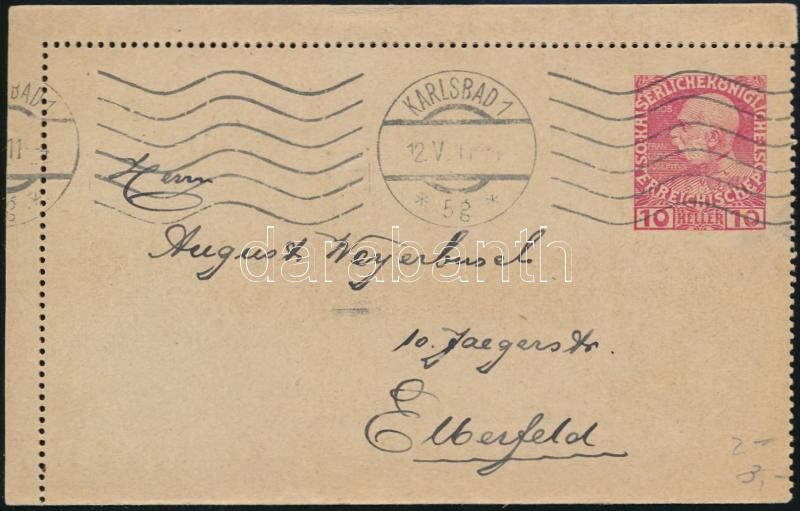 BAD 1
11
KARLSBAD 1
12.V.11
* 5g *
KAISERLICHE KÖNIGLICHE
ÖSTERREICHISCHE POST
10 HELLER 10
Herrn
August Weyerbusch
darabanth
10. Jaegerstr.
Elberfeld
2-
3,-